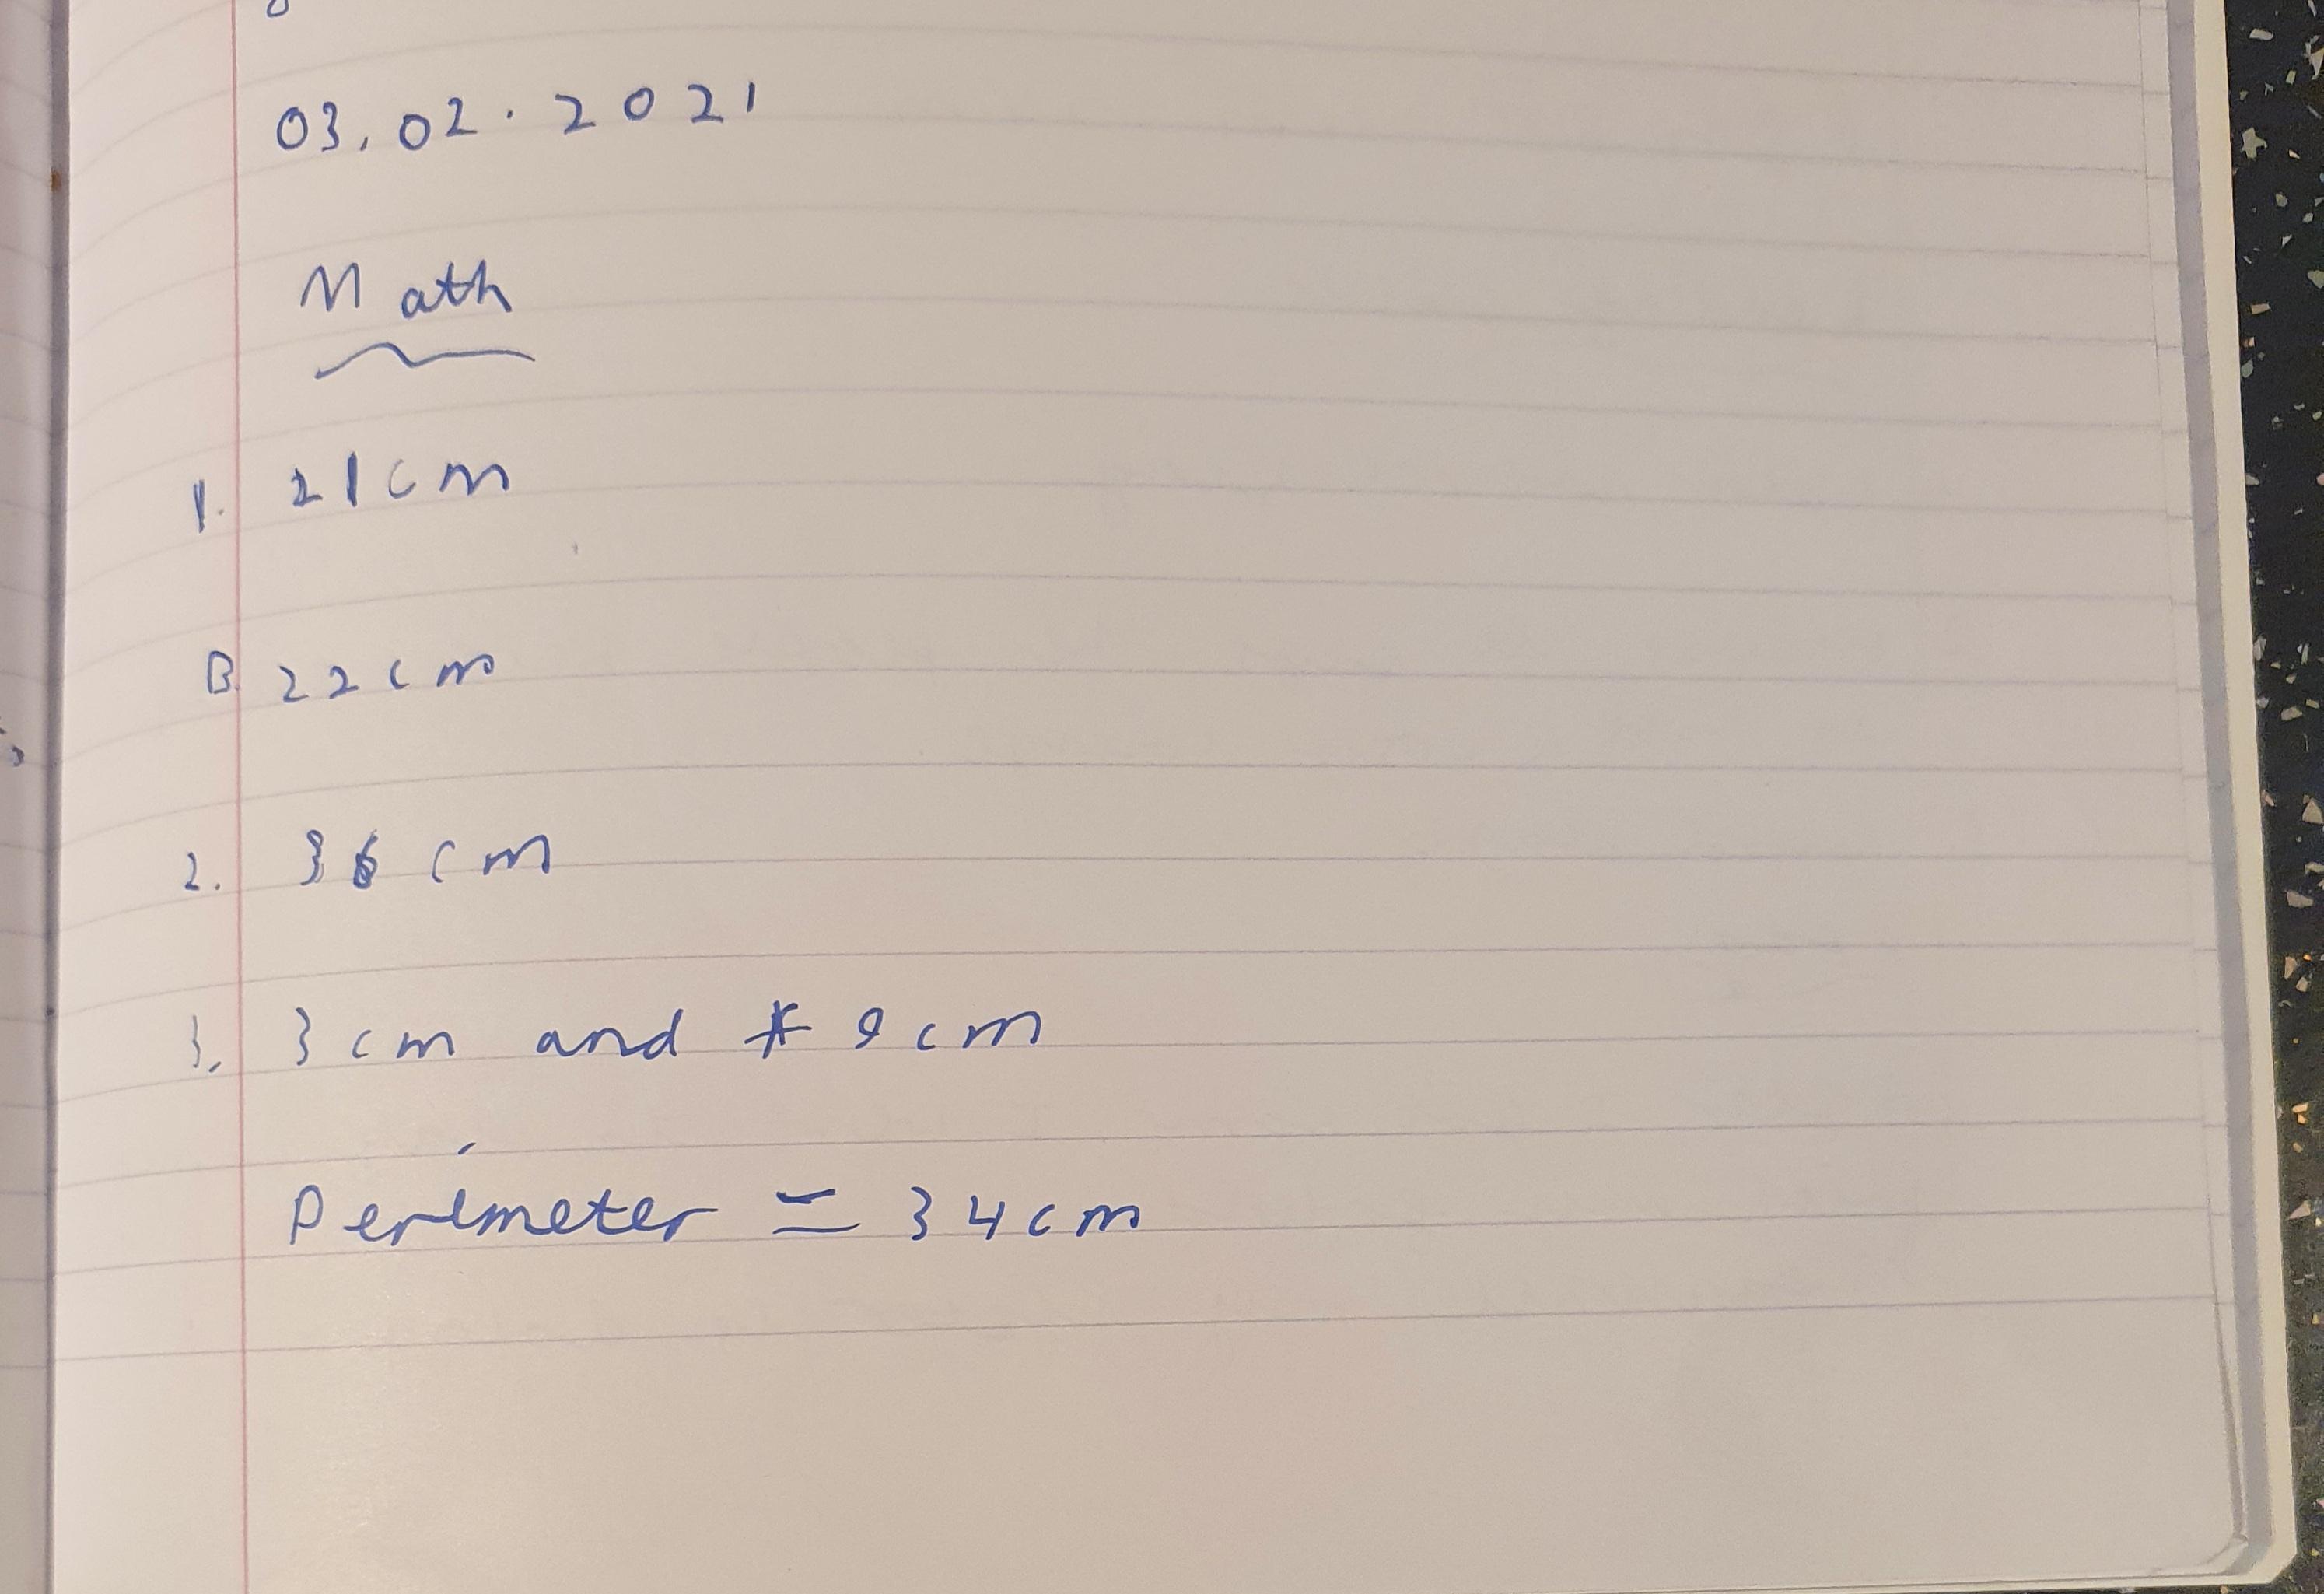 03.02.2021
Math
1. 21cm
B. 22cm
2. 36 cm
3. 3cm and 9cm
Perimeter = 34cm